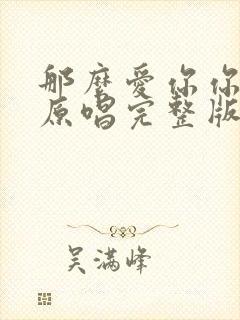 那麼愛你你
原唱完整版
吴满峰